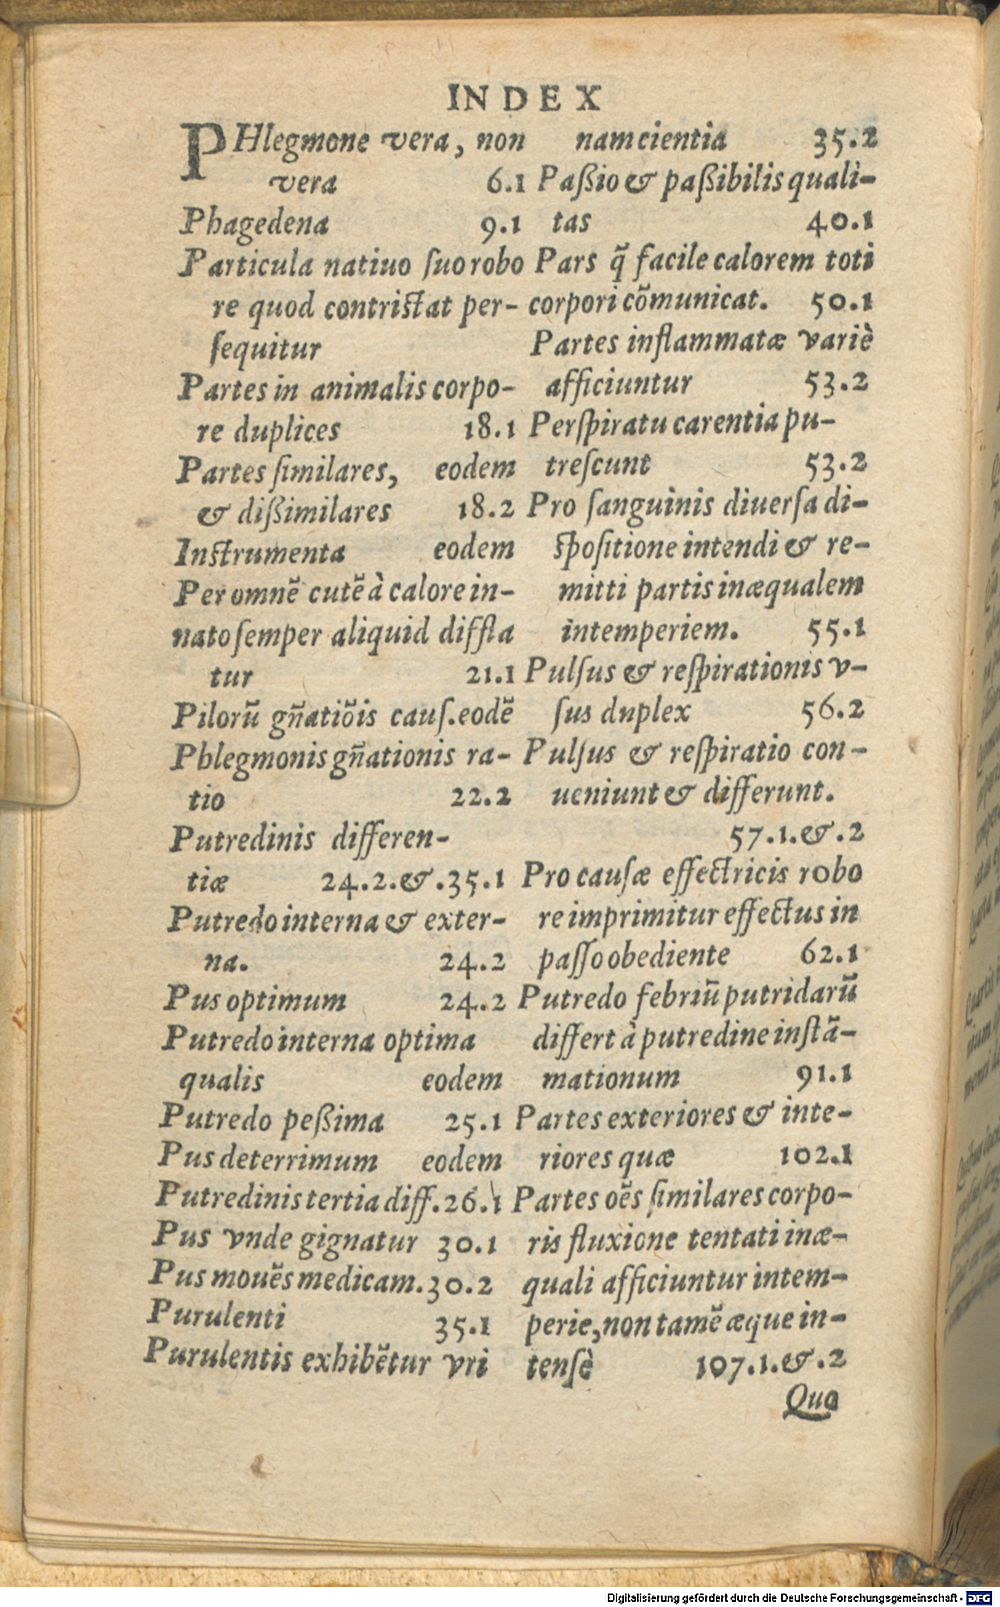 INDEX
PHlegmone vera, non
vera 6.1
Phagedena 9.1
Particula natiuo suo robo
re quod contristat per-
sequitur
Partes in animalis corpo-
re duplices 18.1
Partes similares, eodem
& dißimilares 18.2
Instrumenta eodem
Per omnē cutē à calore in-
nato semper aliquid diffla
tur 21.1
Pilorū gñatiōis caus. eodē
Phlegmonis gñationis ra-
tio 22.2
Putredinis differen-
tiæ 24.2.&.35.1
Putredo interna & exter-
na. 24.2
Pus optimum 24.2
Putredo interna optima
qualis eodem
Putredo peßima 25.1
Pus deterrimum eodem
Putredinis tertia diff. 26.1
Pus vnde gignatur 30.1
Pus mouēs medicam. 30.2
Purulenti 35.1
Purulentis exhibētur vri
nam cientia 35.2
Paßio & paßibilis quali-
tas 40.1
Pars q̃ facile calorem toti
corpori cōmunicat. 50.1
Partes inflammatæ variè
afficiuntur 53.2
Perspiratu carentia pu-
trescunt 53.2
Pro sanguinis diuersa di-
spositione intendi & re-
mitti partis inæqualem
intemperiem. 55.1
Pulsus & respirationis v-
sus duplex 56.2
Pulsus & respiratio con-
ueniunt & differunt.
57.1.&.2
Pro causæ effectricis robo
re imprimitur effectus in
passo obediente 62.1
Putredo febriū putridarū
differt à putredine instā-
mationum 91.1
Partes exteriores & inte-
riores quæ 102.1
Partes oēs similares corpo-
ris fluxione tentati inæ-
quali afficiuntur intem-
perie, non tamē æque in-
tensè 107.1.&.2
Quo
Digitalisierung gefördert durch die Deutsche Forschungsgemeinschaft - DFG